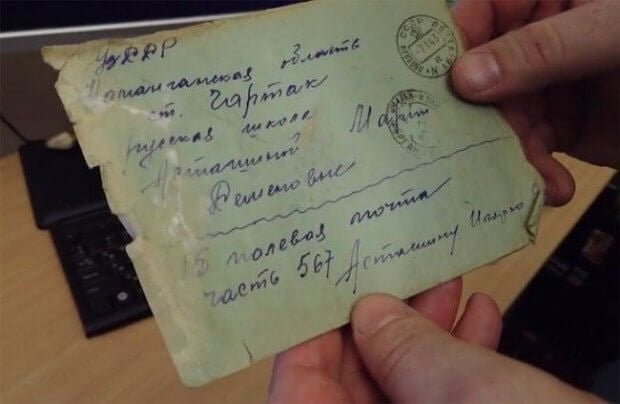 УзССР
Наманганская область
ст. Чартак
русская школа
Асташиной
Семеновне
15 полевая почта
часть 567 Асташину
СССР